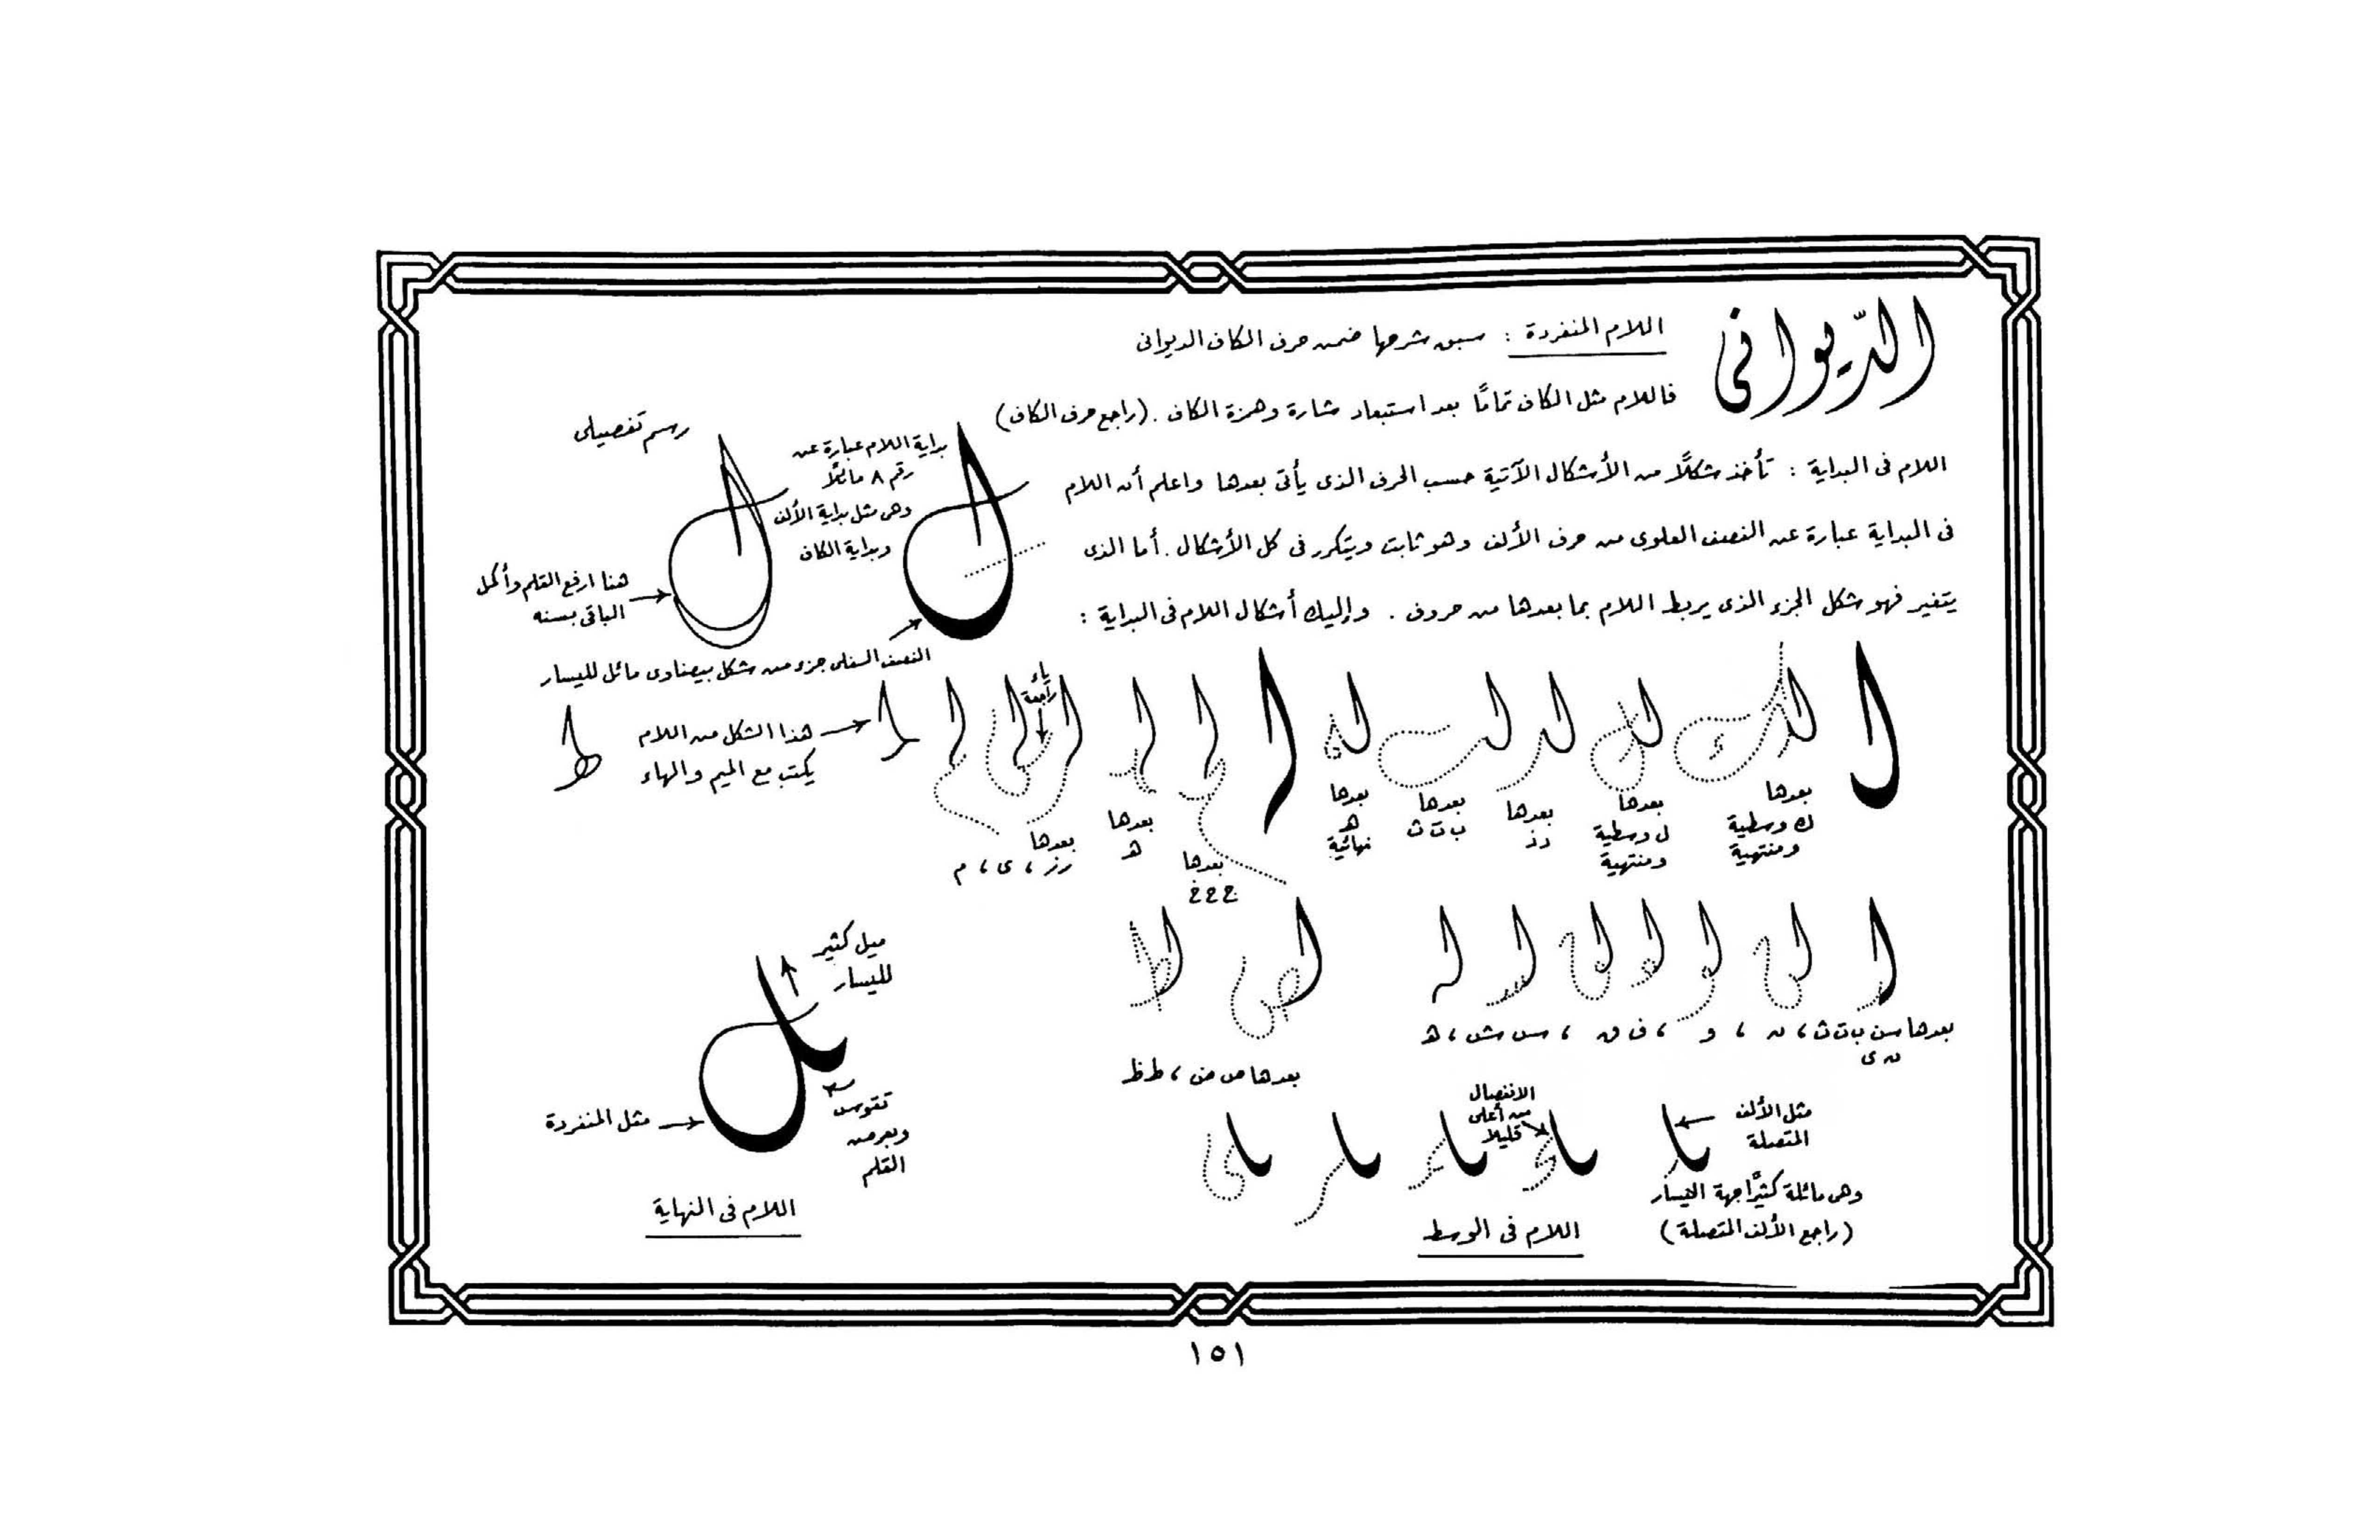 الديوانى
اللام المنفردة : سبق شرحها ضمن حرف الكاف الديوانى
فاللام مثل الكاف تمامًا بعد استبعاد شارة وهمزة الكاف . (راجع حرف الكاف)
اللام فى البداية : تأخذ شكلًا من الأشكال الآتية حسب الحرف الذى يأتى بعدها واعلم أن اللام
فى البداية عبارة عن النصف العلوى من حرف الألف وهو ثابت ويتكرر فى كل الأشكال . أما الذى
يتغير فهو شكل الجزء الذى يربط اللام بما بعدها من حروف . وإليك أشكال اللام فى البداية :
رسم تفصيلى
بداية اللام عبارة عن
رقم ٨ مائلًا
وهى مثل بداية الألف
وبداية الكاف
هنا ارفع القلم وأكمل
الباقى بسنه
النصف السفلى جزء من شكل بيضاوى مائل لليسار
بعدها
ك وسطية
ومنتهية
بعدها
ل وسطية
ومنتهية
بعدها
د ذ
بعدها
ب ت ث
بعدها
ه
نهائية
بعدها
ج ح خ
بعدها
ه
ياء
راجعة
بعدها
ر ز ، ى ، م
هذا الشكل من اللام
يكتب مع الميم والهاء
بعدها سن ب ت ث ، ن ، و ، ف ق ، س ش ، ه
ن ى
بعدها ص ض ، ط ظ
مثل الألف
المتصلة
وهى مائلة كثيرًا جهة اليسار
(راجع الألف المتصلة)
الانفصال
من أعلى
قليلا
اللام فى الوسط
ميل كثير
لليسار
تقوس
وبعرض
القلم
مثل المنفردة
اللام فى النهاية
١٥١